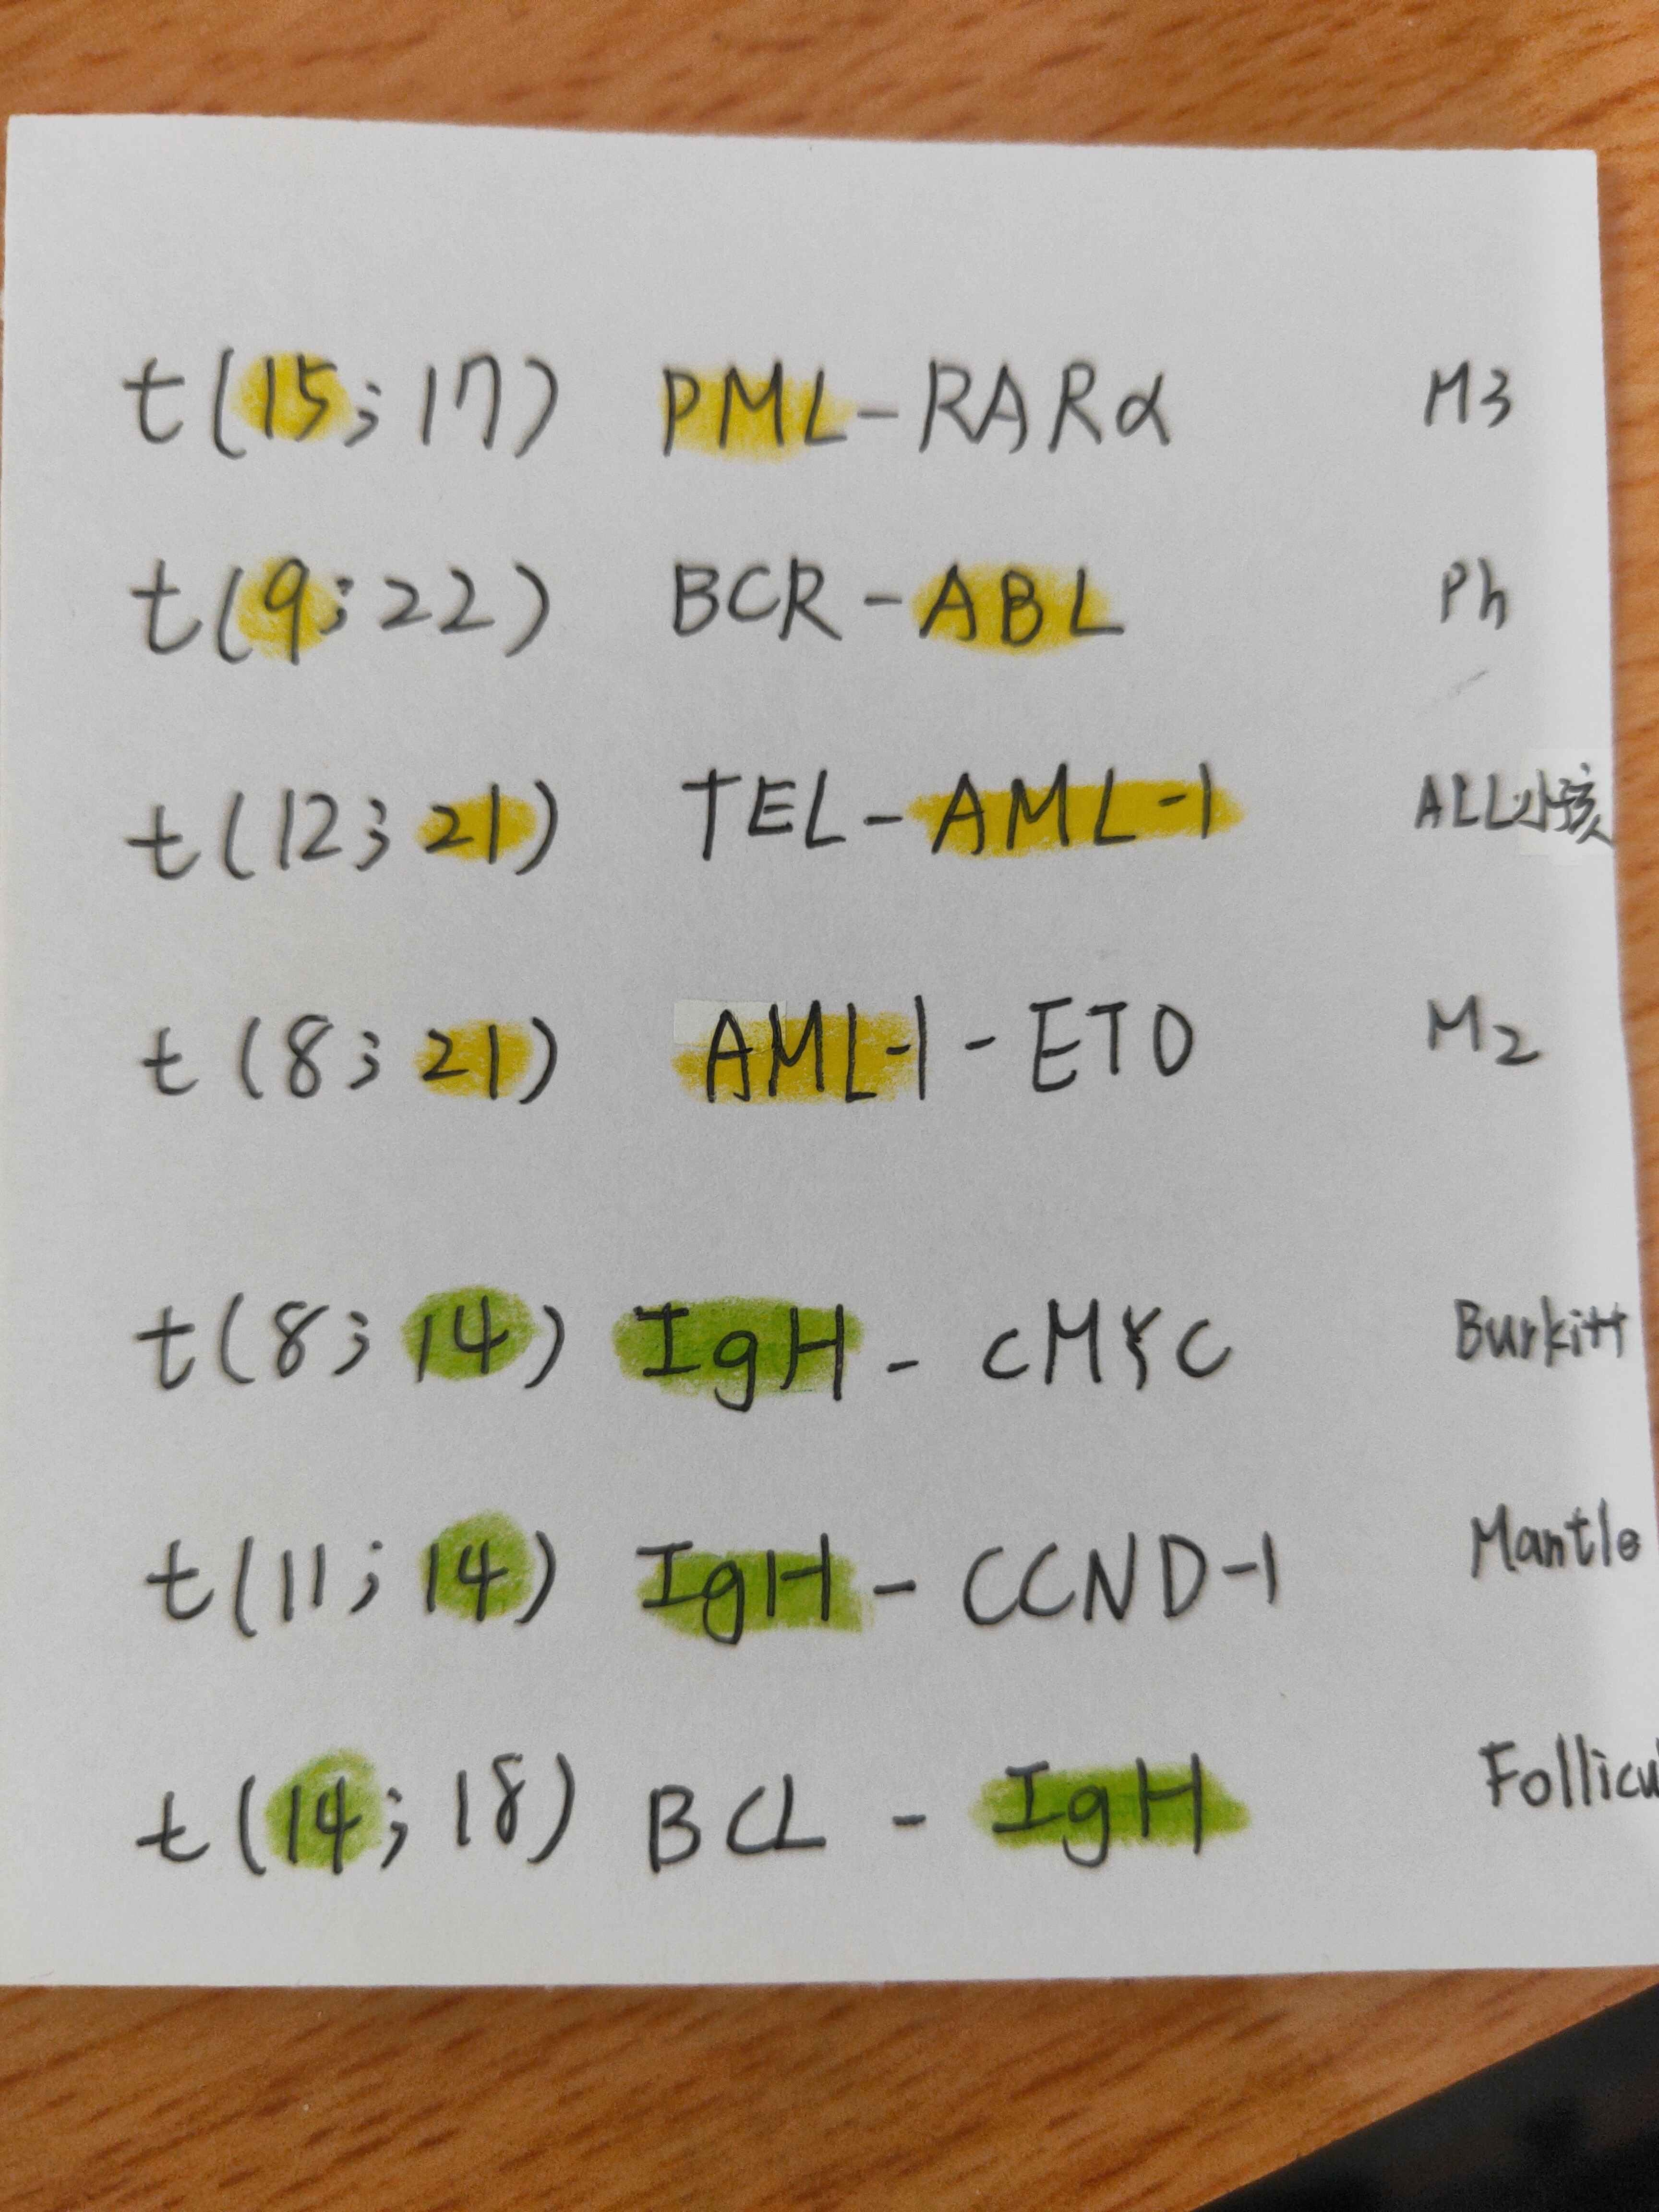 t(15;17) PML-RARα M3
t(9;22) BCR-ABL Ph
t(12;21) TEL-AML-1 ALL小孩
t(8;21) AML-1-ETO M2
t(8;14) IgH - cMYC Burkitt
t(11;14) IgH - CCND-1 Mantle
t(14;18) BCL - IgH Follicu